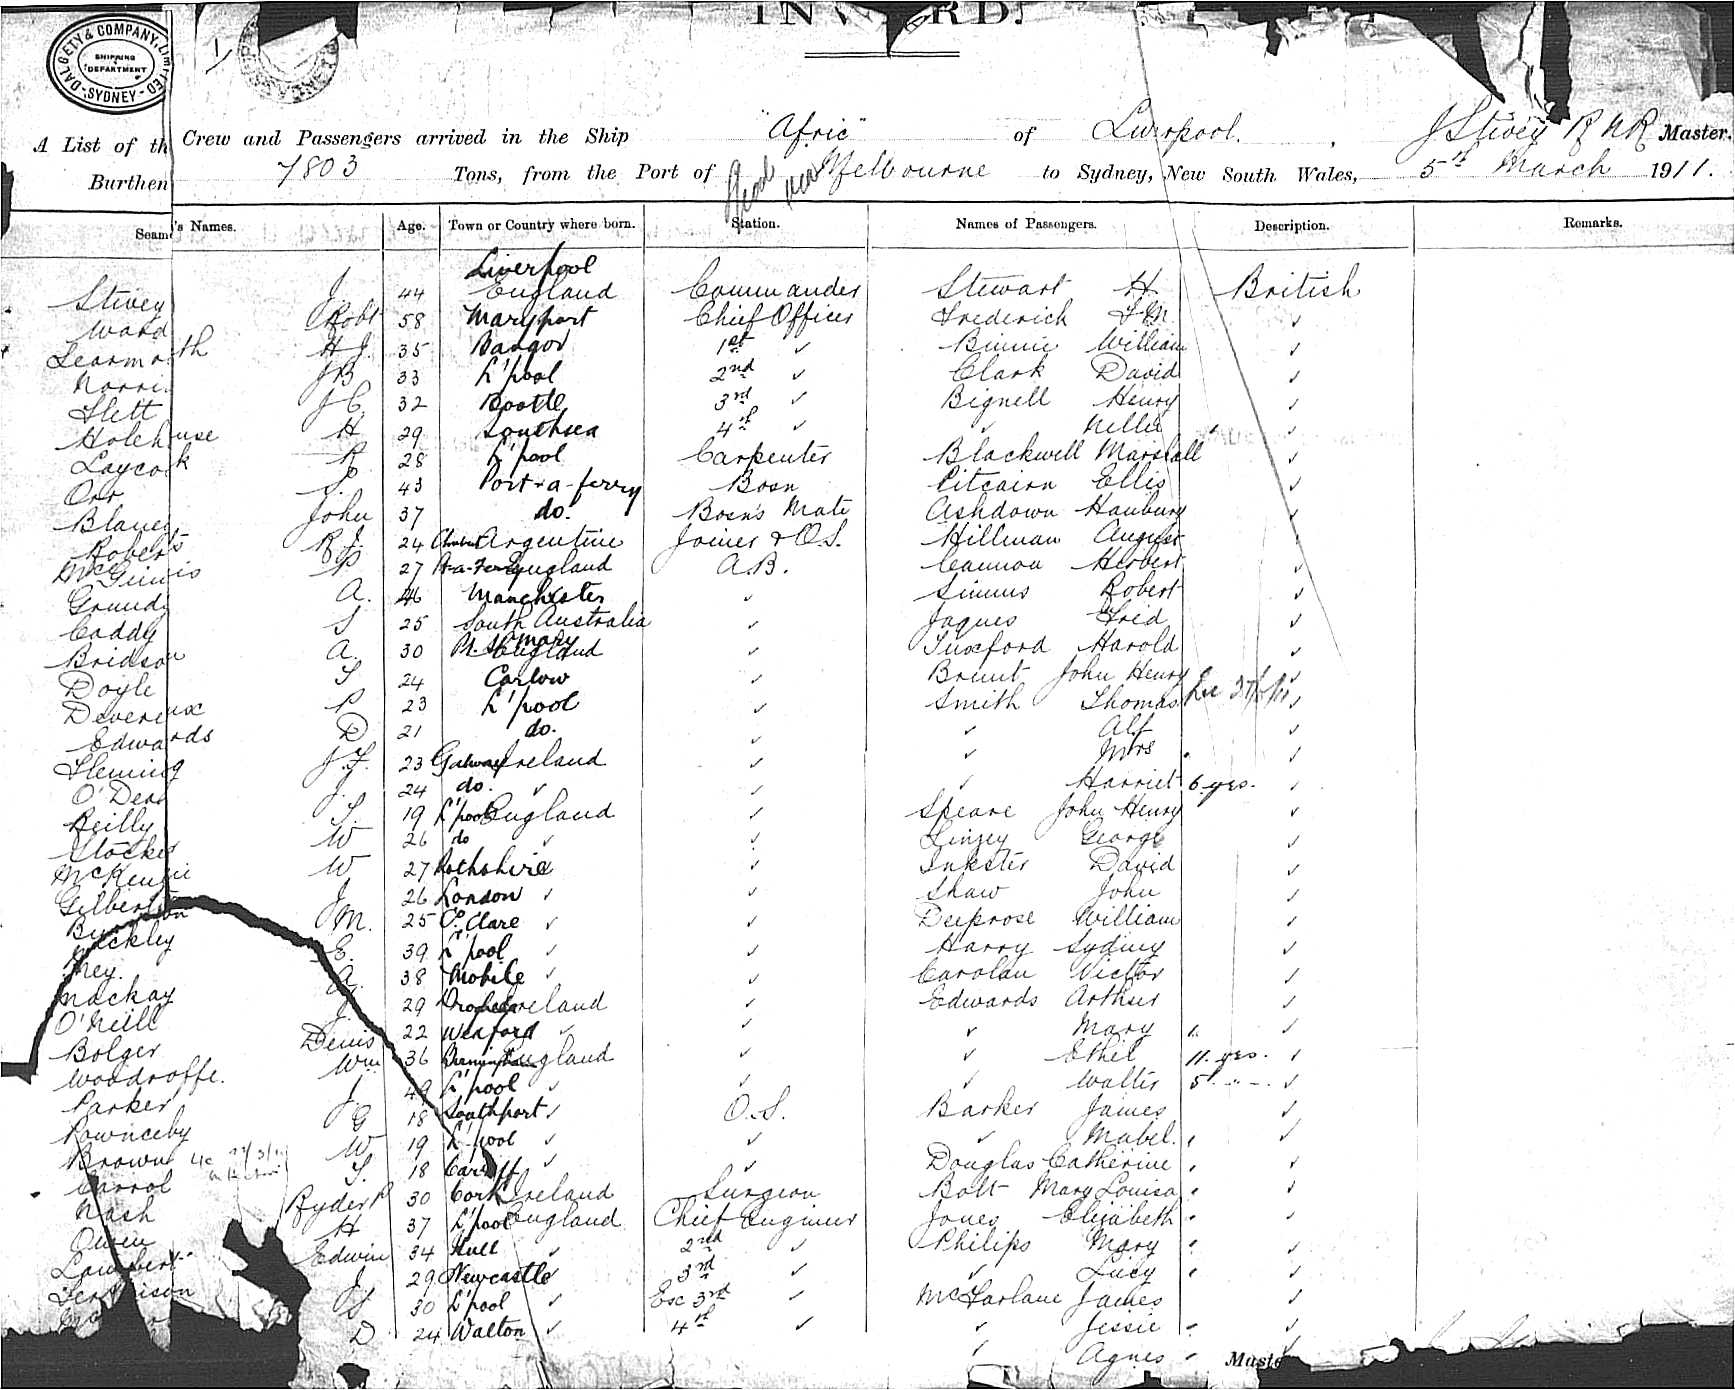 INWARD.
DALGETY & COMPANY, LIMITED
SHIPPING DEPARTMENT
SYDNEY
A List of th Crew and Passengers arrived in the Ship "Afric" of Liverpool, J Stivey R N R Master.
Burthen 7803 Tons, from the Port of Melbourne to Sydney, New South Wales, 5th March 1911.
Seam 's Names. Age. Town or Country where born. Station. Names of Passengers. Description. Remarks.
Liverpool
Stivey J 44 England Commander Stewart H British
Ward Robt 58 Maryport Chief Officer Frederick F M ✓
Learmonth H J. 35 Bangor 1st ✓ Binnie William ✓
Norri J B 33 L'pool 2nd ✓ Clark David ✓
Flett J C 32 Bootle 3rd ✓ Bignell Henry ✓
Holehouse H 29 Southsea 4th ✓ ✓ Nellie ✓
Laycock R 28 L'pool Carpenter Blackwell Marshall ✓
Orr S. 43 Port-a-ferry Bosn Pitcairn Ellis ✓
Blaney John 37 do. Bosn's Mate Ashdown Hanbury ✓
Roberts R J. 24 Argentine Joiner & O.S. Hillman August ✓
McGinnis P 27 England A.B. Cannon Herbert ✓
Grundy A. 46 Manchester ✓ Simms Robert ✓
Caddy S 25 South Australia ✓ Jaques Fred ✓
Bridson A. 30 Pt. St Mary England ✓ Tuxford Harold ✓
Doyle T 24 Carlow ✓ Brunt John Henry ✓
Devereux P 23 L'pool ✓ Smith Thomas ✓
Edwards D 21 do. ✓ ✓ Alf ✓
Fleming J.F. 23 Galway Ireland ✓ ✓ Mrs ✓
O'Dea J. 24 do. ✓ ✓ ✓ Harriet 6 yrs. ✓
Reilly T. 19 L'pool England ✓ Speare John Henry ✓
Stocker W 26 do ✓ ✓ Linzey George ✓
McKenzie W 27 Rothshire ✓ Inkster David ✓
Gilbertson J 26 London ✓ ✓ Shaw John ✓
M. 25 Co. Clare ✓ ✓ Deeprose William ✓
Buckley E. 39 L'pool ✓ ✓ Harry Sydney ✓
Ney. A. 38 Mobile ✓ ✓ Carolan Victor ✓
Mackay J 29 Drogheda Ireland ✓ Edwards Arthur ✓
O'Neill Denis 22 Wexford ✓ ✓ ✓ Mary ✓
Bolger Wm 36 Birmingham England ✓ ✓ Ethel 11 yrs. ✓
Woodroffe. J 49 L'pool ✓ ✓ ✓ Walter 5 " ✓
Parker G 18 Southport ✓ O.S. Barker James ✓
Pownceby W 19 L'pool ✓ ✓ ✓ Mabel. ✓
Brown T. 18 Cardiff ✓ ✓ Douglas Catherine ✓
Carrol Ryder P 30 Cork Ireland Surgeon Bolt Mary Louisa ✓
Nash H 37 L'pool England Chief Engineer Jones Elizabeth ✓
Owen Edwin 34 Hull ✓ 2nd ✓ Philips Mary ✓
Lambert J 29 Newcastle ✓ 3rd ✓ ✓ Lucy ✓
S 30 L'pool ✓ Esc 3rd ✓ McFarlane James ✓
D 24 Walton ✓ 4th ✓ ✓ Jessie ✓
✓ Agnes ✓
Maste